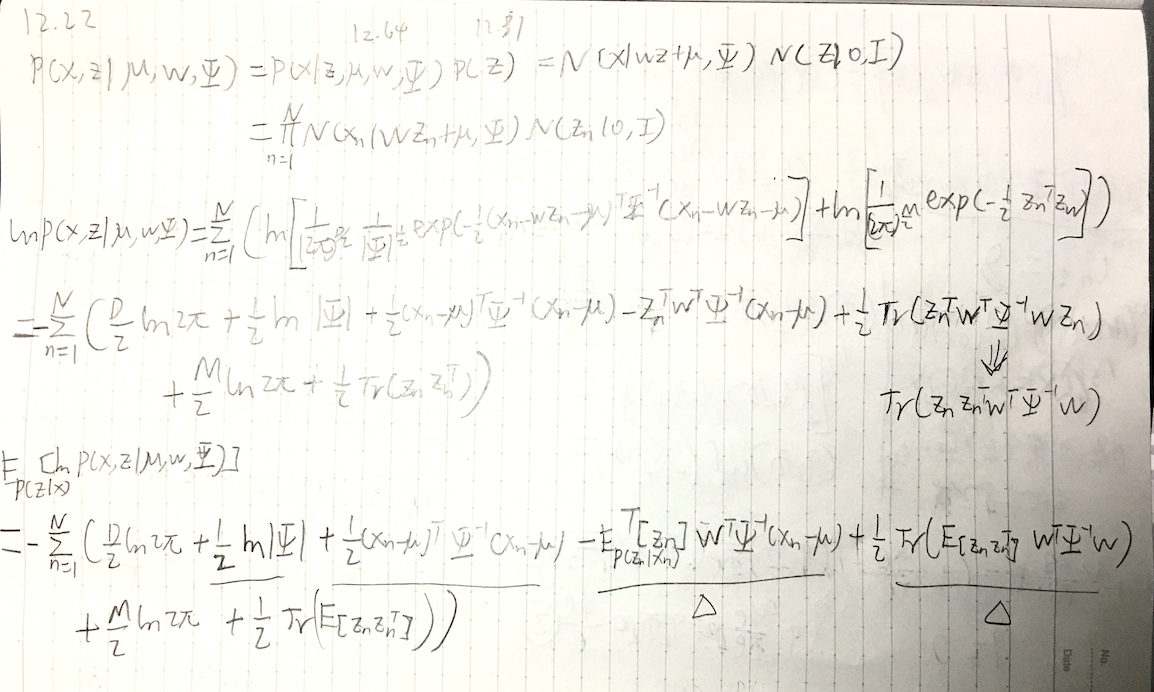 12.22
12.64 12.31
P(x,z|μ,w,Ψ) = P(x|z,μ,w,Ψ) P(z) = N(x|wz+μ,Ψ) N(z|0,I)
= ∏_{n=1}^{N} N(x_n|Wz_n+μ,Ψ) N(z_n|0,I)
ln P(x,z|μ,wΨ) = Σ_{n=1}^{N} ( ln[ 1/(2π)^{D/2} 1/|Ψ|^{1/2} exp(-1/2 (x_n-wz_n-μ)^T Ψ^{-1} (x_n-wz_n-μ) ] + ln[ 1/(2π)^{M/2} exp(-1/2 z_n^T z_n) ] )
= -Σ_{n=1}^{N} ( D/2 ln 2π + 1/2 ln |Ψ| + 1/2 (x_n-μ)^T Ψ^{-1} (x_n-μ) - z_n^T w^T Ψ^{-1} (x_n-μ) + 1/2 Tr(z_n^T w^T Ψ^{-1} w z_n)
⇓
+ M/2 ln 2π + 1/2 Tr(z_n z_n^T) ) Tr(z_n z_n^T w^T Ψ^{-1} w)
E_{P(z|x)} [ln P(x,z|μ,w,Ψ)]
= -Σ_{n=1}^{N} ( D/2 ln 2π + 1/2 ln|Ψ| + 1/2 (x_n-μ)^T Ψ^{-1} (x_n-μ) - E^T_{P(z_n|x_n)}[z_n] W^T Ψ^{-1} (x_n-μ) + 1/2 Tr(E[z_n z_n^T] W^T Ψ^{-1} w)
△ △
+ M/2 ln 2π + 1/2 Tr(E[z_n z_n^T]) )
No.
Date